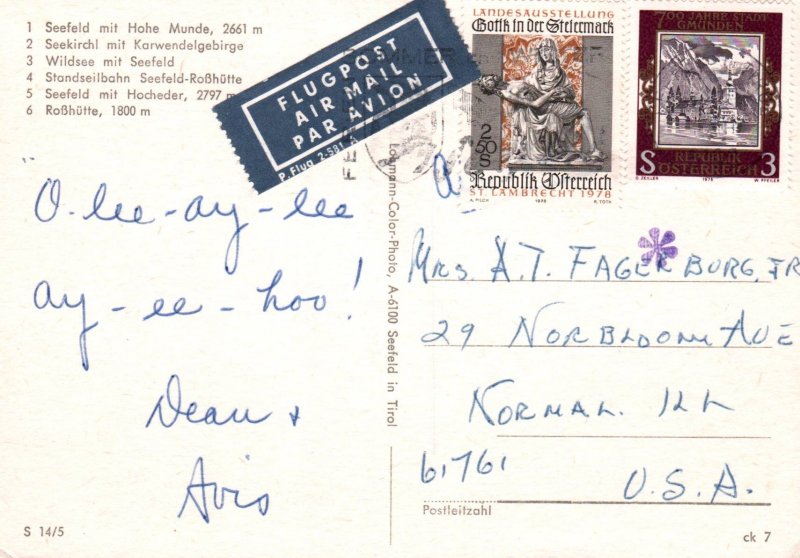 1 Seefeld mit Hohe Munde, 2661 m
2 Seekirchl mit Karwendelgebirge
3 Wildsee mit Seefeld
4 Standseilbahn Seefeld-Roßhütte
5 Seefeld mit Hocheder, 2797 m
6 Roßhütte, 1800 m
FLUGPOST
AIR MAIL
PAR AVION
P. Flug. 2-581 A
LANDESAUSSTELLUNG
Gotik in der Steiermark
2
50
S
Republik Österreich
ST. LAMBRECHT 1978
A. PILCH 1978 R. TOTH
700 JAHRE STADT
GMUNDEN
S 3
REPUBLIK
ÖSTERREICH
O. ZEILER 1978 W. PFEILER
SOMMER
" O-lee-ay-lee
ay-ee-hoo!
Dean +
Avis
Lohmann-Color-Photo, A-6100 Seefeld in Tirol
Mrs. A.T. FAGERBURG, JR
29 NORBLOOM AVE
NORMAL. ILL
61761
U.S.A.
Postleitzahl
S 14/5
ck 7